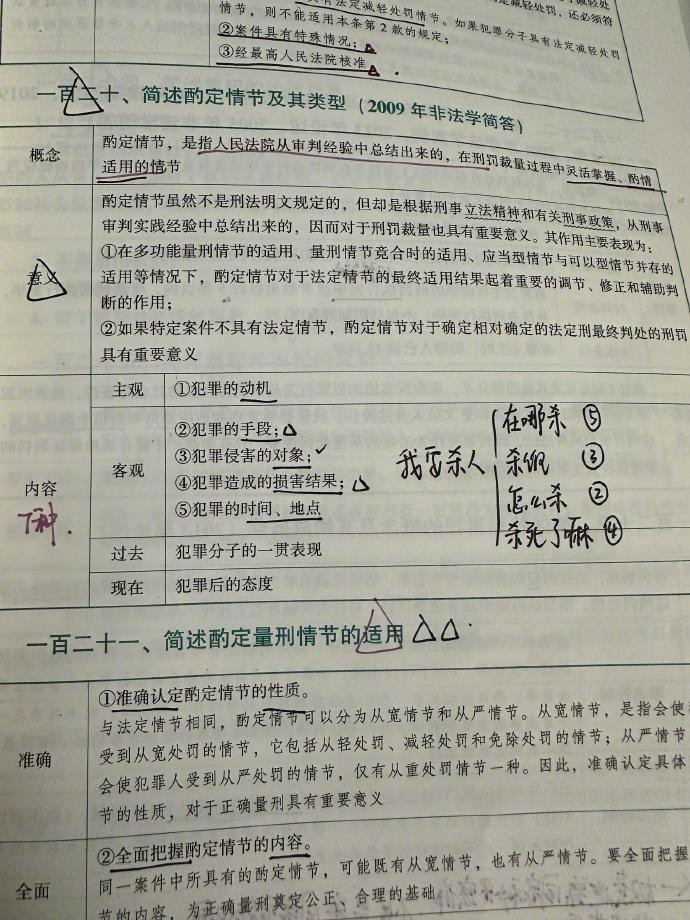 具有法定减轻处罚情节。如果犯罪分子具有法定减轻处罚
情节，则不能适用本条第2款的规定；
②案件具有特殊情况；
③经最高人民法院核准
一百二十、简述酌定情节及其类型（2009年非法学简答）
概念
酌定情节，是指人民法院从审判经验中总结出来的，在刑罚裁量过程中灵活掌握、酌情
适用的情节
意义
酌定情节虽然不是刑法明文规定的，但却是根据刑事立法精神和有关刑事政策，从刑事
审判实践经验中总结出来的，因而对于刑罚裁量也具有重要意义。其作用主要表现为：
①在多功能量刑情节的适用、量刑情节竞合时的适用、应当型情节与可以型情节并存的
适用等情况下，酌定情节对于法定情节的最终适用结果起着重要的调节、修正和辅助判
断的作用；
②如果特定案件不具有法定情节，酌定情节对于确定相对确定的法定刑最终判处的刑罚
具有重要意义
内容
7种.
主观
①犯罪的动机
客观
②犯罪的手段；
③犯罪侵害的对象；
④犯罪造成的损害结果；
⑤犯罪的时间、地点
我要杀人
在哪杀 ⑤
杀谁 ③
怎么杀 ②
杀死了嘛 ④
过去
犯罪分子的一贯表现
现在
犯罪后的态度
一百二十一、简述酌定量刑情节的适用
准确
①准确认定酌定情节的性质。
与法定情节相同，酌定情节可以分为从宽情节和从严情节。从宽情节，是指会使
受到从宽处罚的情节，它包括从轻处罚、减轻处罚和免除处罚的情节；从严情节
会使犯罪人受到从严处罚的情节，仅有从重处罚情节一种。因此，准确认定具体
节的性质，对于正确量刑具有重要意义
全面
②全面把握酌定情节的内容。
同一案件中所具有的酌定情节，可能既有从宽情节，也有从严情节。要全面把握
节的内容，为正确量刑奠定公正、合理的基础